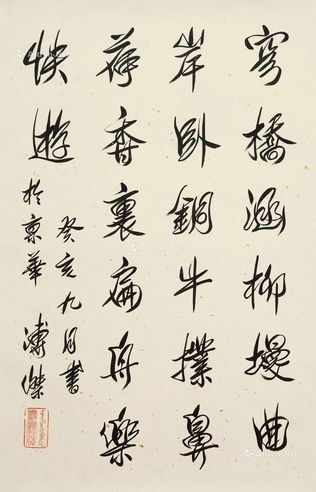 穹橋涵柳曲
岸臥銅牛撲鼻
荷香裏扁舟樂
快遊
癸亥九月書
於京華 溥傑